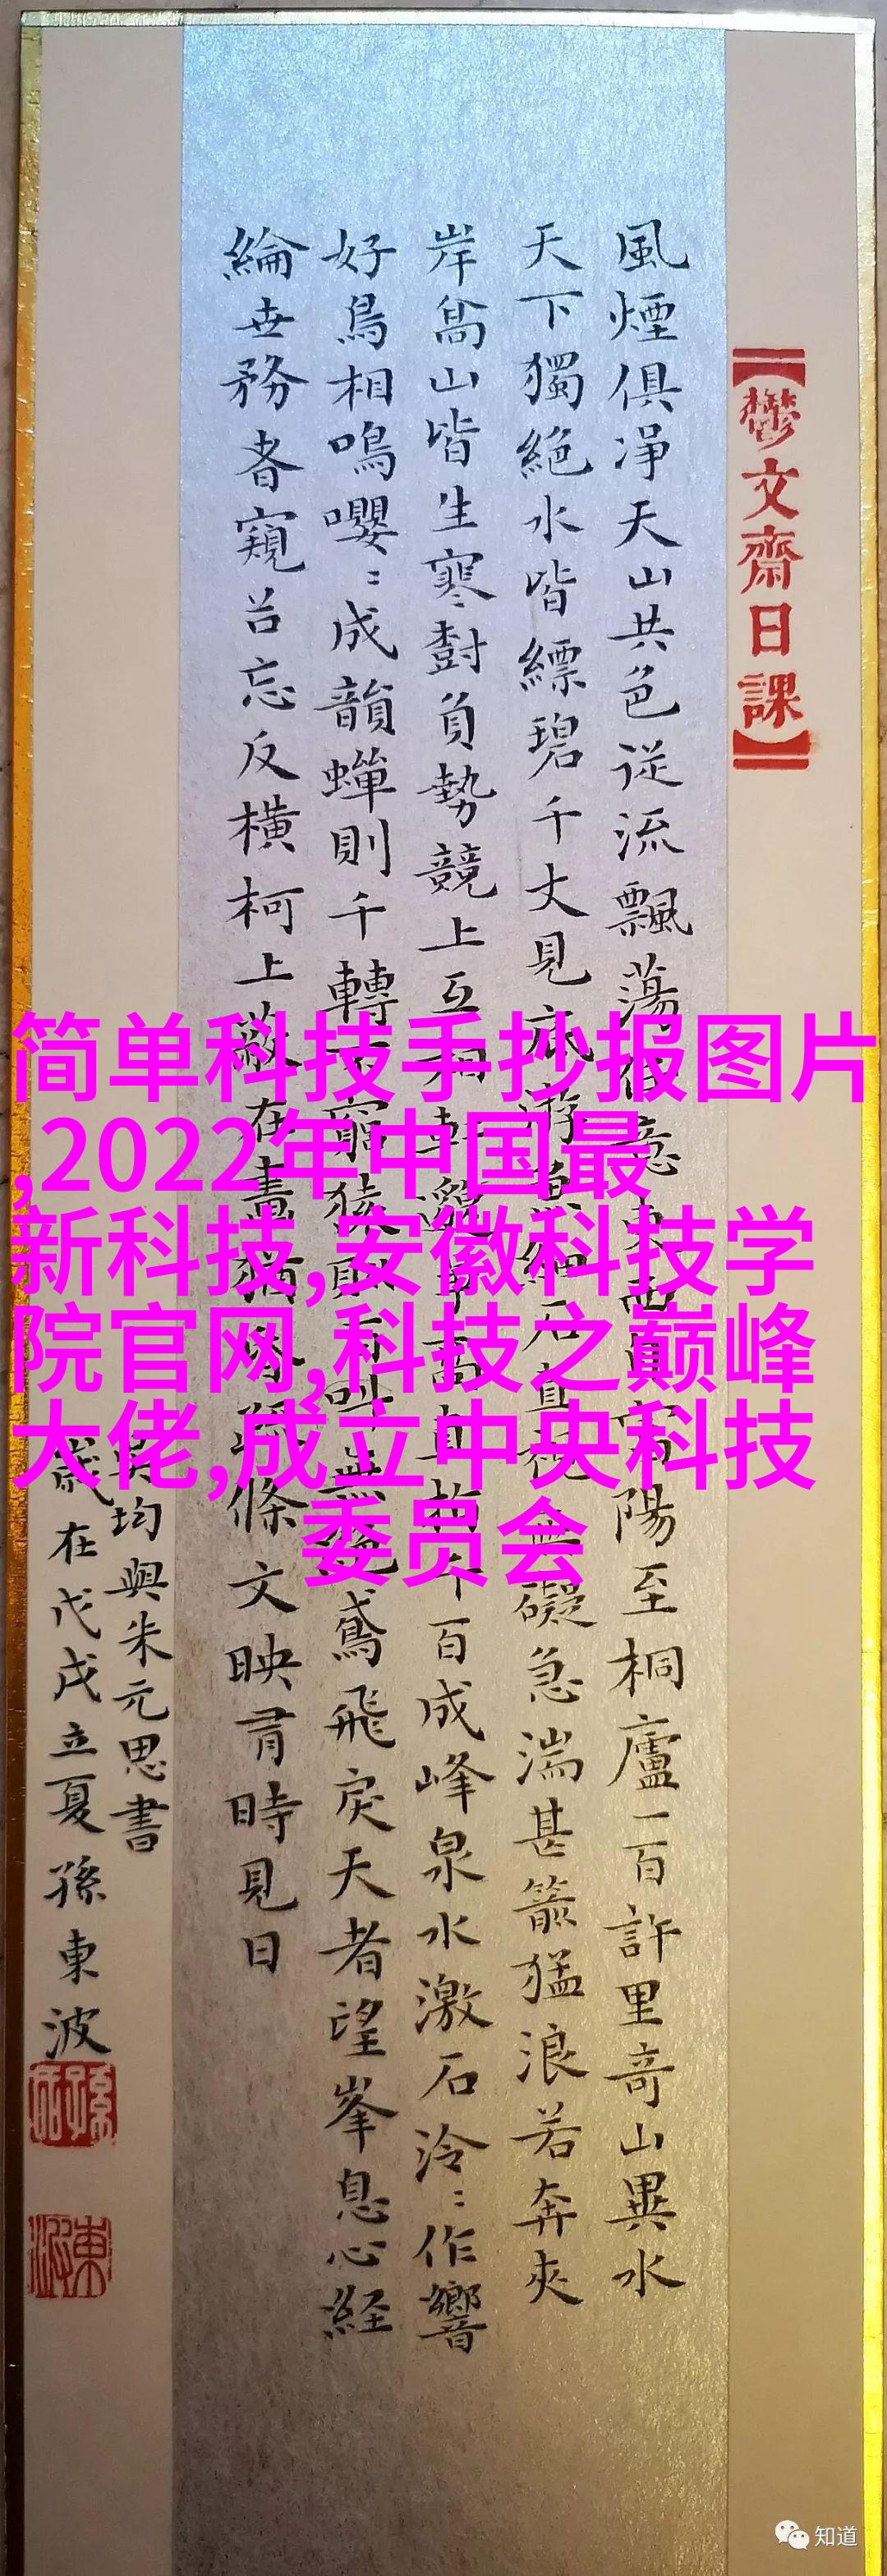 【鬱文齋日課】
風煙俱淨天山共色從流飄蕩任意東西自富陽至桐廬一百許里奇山異水
天下獨絕水皆縹碧千丈見底游魚細石直視無礙急湍甚箭猛浪若奔夾
岸高山皆生寒樹負勢競上互相軒邈爭高直指千百成峰泉水激石泠〻作響
好鳥相鳴嚶〻成韻蟬則千轉不窮猿則百叫無絕鳶飛戾天者望峯息心経
綸世務者窺谷忘反橫柯上蔽在晝猶昏疏條交映有時見日
吴均與朱元思書
歲在戊戌立夏孫東波
简单科技手抄报图片
,2022年中国最
新科技,安徽科技学
院官网,科技之巅峰
大佬,成立中央科技
委员会
知道